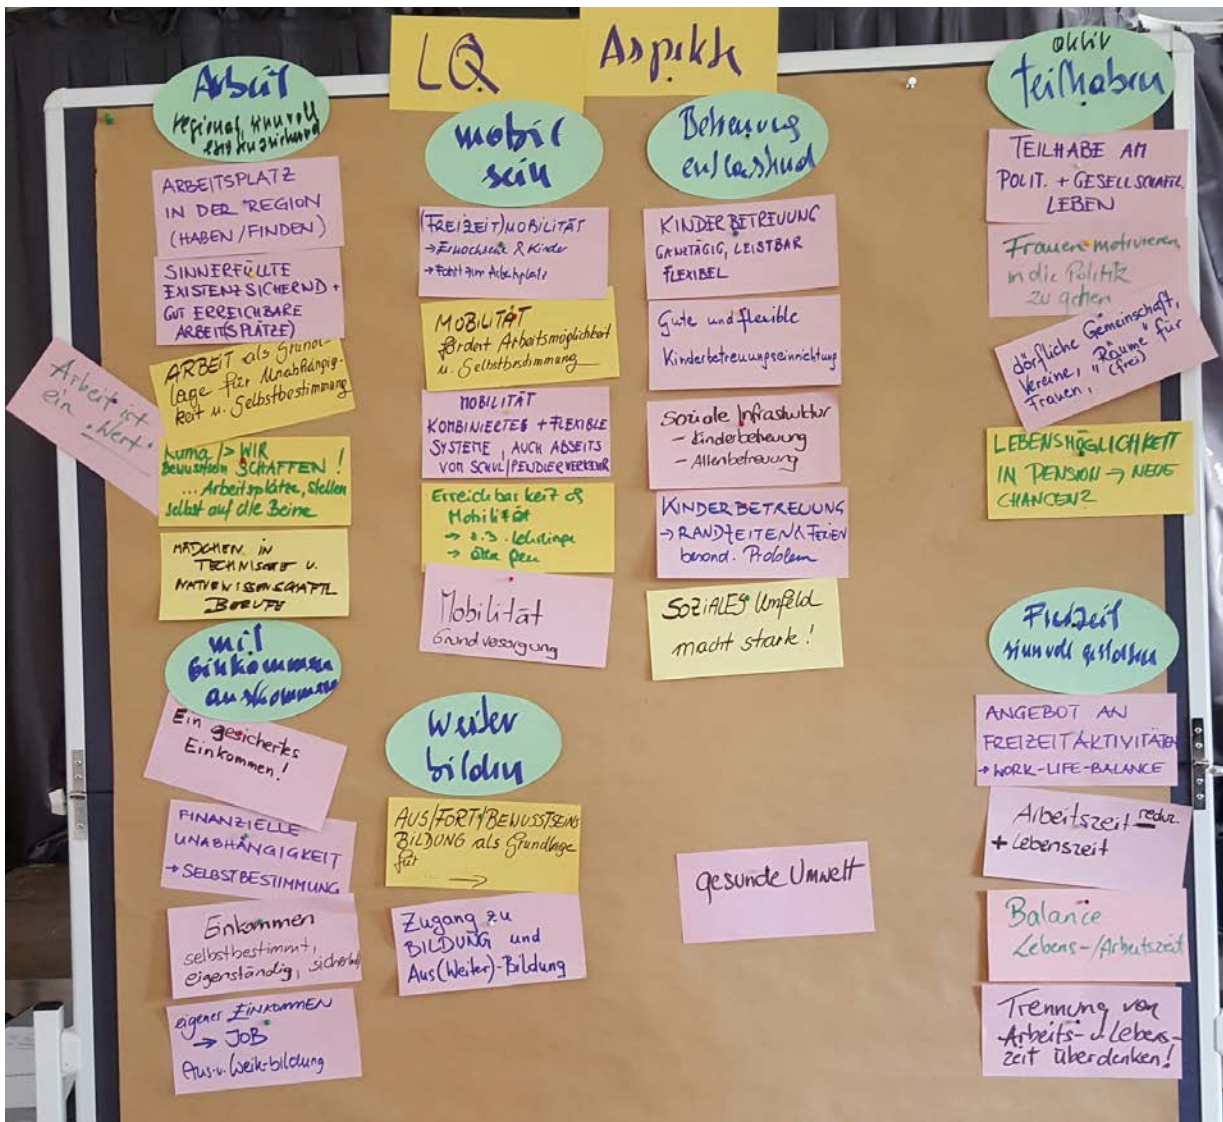 LQ
Aspekte
Arbeit
regional, sinnvoll
existenzsichernd
ARBEITSPLATZ
IN DER REGION
(HABEN/FINDEN)
SINNERFÜLLTE
EXISTENZSICHERND +
GUT ERREICHBARE
ARBEIT(SPLÄTZE)
ARBEIT als Grund-
lage für Unabhängig-
keit u. Selbstbestimmung
Arbeit ist
ein
"Wert"
/> WIR
Bewusstsein SCHAFFEN!
... Arbeitsplätze, stellen
selbst auf die Beine
MÄDCHEN IN
TECHNISCHE U.
NATURWISSENSCHAFTL
BERUFE
mit
Einkommen
auskommen
Ein gesichertes
Einkommen!
FINANZIELLE
UNABHÄNGIGKEIT
→ SELBSTBESTIMMUNG
Einkommen
selbstbestimmt,
eigenständig,
eigenes EINKOMMEN
→ JOB
Aus-u. Weiterbildung
mobil
sein
(FREIZEIT)MOBILITÄT
→ Erwachsene & Kinder
→ Fahrt zum Arbeitsplatz
MOBILITÄT
fördert Arbeitsmöglichkeit
u. Selbstbestimmung
MOBILITÄT
KOMBINIERTES + FLEXIBLE
SYSTEME, AUCH ABSEITS
VOM SCHUL/PENDLERVERKEHR
Erreichbarkeit
Mobilität
→ z.B. Lehrlinge
→
Mobilität
Grundversorgung
weiter
bilden
AUS/FORT/BEWUSSTSEINS
BILDUNG als Grundlage
für
... →
Zugang zu
BILDUNG und
Aus(Weiter)-Bildung
Betreuung
entlastend
KINDERBETREUUNG
GANZTÄGIG, LEISTBAR
FLEXIBEL
Gute und flexible
Kinderbetreuungseinrichtung
Soziale Infrastruktur
- Kinderbetreuung
- Altenbetreuung
KINDERBETREUUNG
→ RANDZEITEN & FERIEN
besond. Problem
SOZIALES Umfeld
macht stark!
gesunde Umwelt
aktiv
teilhaben
TEILHABE AM
POLIT. + GESELLSCHAFTL.
LEBEN
Frauen motivieren,
in die Politik
zu gehen
dörfliche Gemeinschaft,
Vereine, "Räume" für
Frauen, (frei)
LEBENSMÖGLICHKEIT
IN PENSION → NEUE
CHANCEN?
Freizeit
sinnvoll gestalten
ANGEBOT AN
FREIZEITAKTIVITÄTEN
→ WORK-LIFE-BALANCE
Arbeitszeit reduz.
+ Lebenszeit
Balance
Lebens-/Arbeitszeit
Trennung von
Arbeits- u. Lebens-
zeit überdenken!